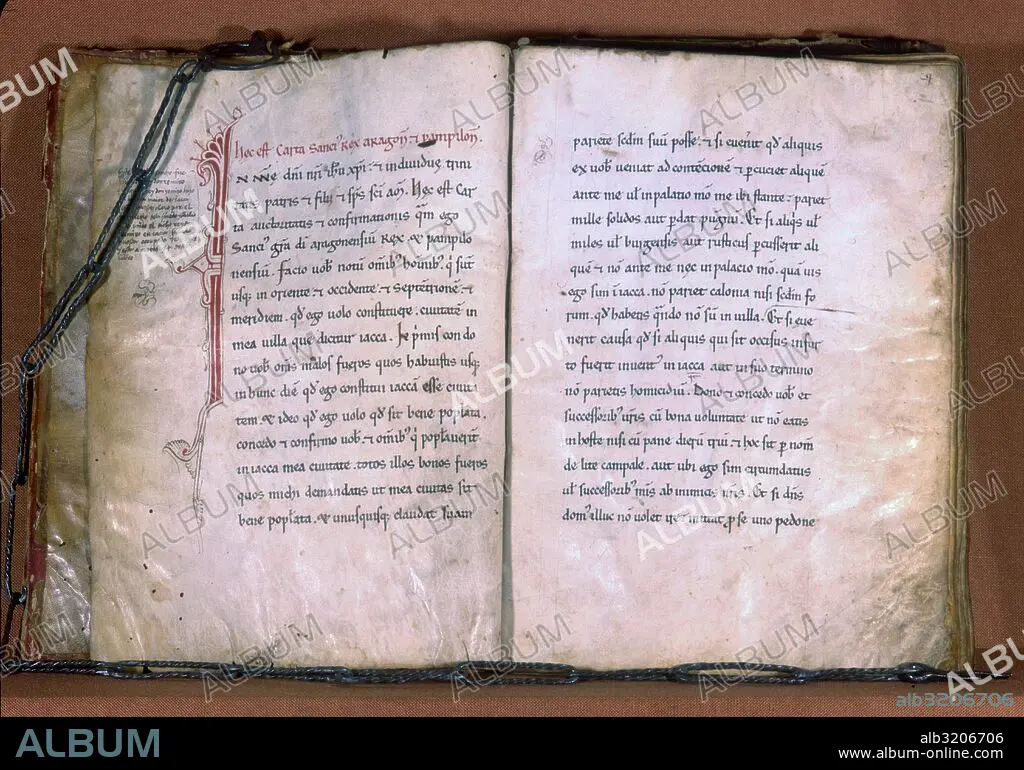 hec est Carta Sancij Rex aragoñ ⁊ pampiloñ.
N noḿe dñi nři ihu xp̃i. ⁊ indiuidue trini
tatis patris ⁊ filii ⁊ sp̃s sc̃i am̃. Hec est Car
ta auctoritatis ⁊ confirmationis q̃m ego
Sancꝰ gr̃a di aragonensiũ Rex ⁊ pampilo
nensiũ. facio uob̃ notũ omib; hoĩnib; q̃ sũt
usq; in oriente ⁊ occidente ⁊ septẽtrionẽ ⁊
meridiem. qđ ego uolo constituere ciuitatẽ in
mea uilla que dicitur iacca. In p̃mis con do
no uob̃ oms malos fueros quos habuistis usq;
in hunc diẽ qđ ego constitui iaccã esse ciuita
tem ⁊ ideo qđ ego uolo qđ sit bene pop̃lata.
concedo ⁊ confirmo uob̃ ⁊ omib; q̃ pop̃lauerit
in iacca mea ciuitate. totos illos bonos fueros
quos michi demandatis ut mea ciuitas sit
bene pop̃lata. ⁊ unusquisq; claudat suam
pariete sedm suũ posse. ⁊ si euenit qđ aliquis
ex uob̃ ueniat ad contẽcionẽ ⁊ p̃cuciet aliquẽ
ante me ul̃ in palatio mo me ibi stante. pariet
mille solidos aut p̃dat pugnũ. Et si aliqs ul̃
miles ul̃ burgensis aut rusticus p̃cusserit ali
quẽ ⁊ nõ ante me nec in palacio mõ. quãuis
ego sim ĩ iacca. nõ pariet calonia nisi sedm fo
rum. qđ habetis q̃ndo nõ sũ in uilla. Et si eue
nerit causa qđ si aliquis qui sit occisus in fur
to fuerit inuent̃ in iacca aut in suo termino
nõ parietis homicidiũ. Dono ⁊ concedo uob̃ et
successorib; uřis cũ bona uoluntate ut nõ eatis
in hoste nisi cũ pane dierũ triũ ⁊ hoc sit p̃ nom̃
de lite campale. aut ubi ego sim circumdatus
ul̃ successorib; mis ab inimicis ñris. Et si dñs
domꝰ illuc nõ uolet ire mitat p̃ se uno pedone
ALBUM
alb3206706
alb3206706
www.album-online.com